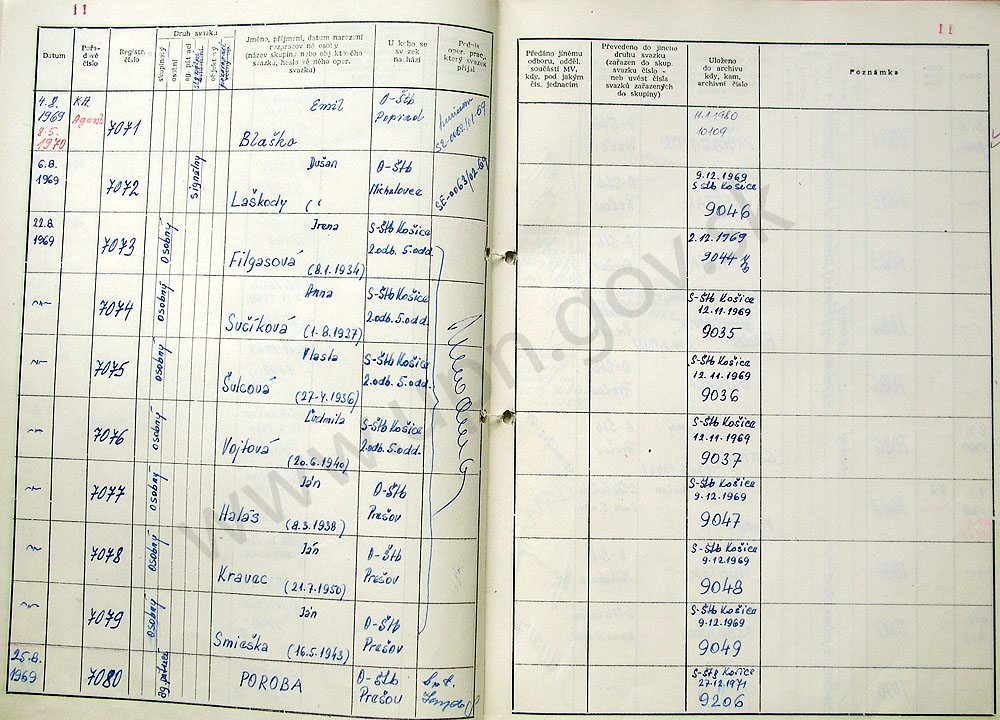 11
Datum
Pořadové číslo
Registr. číslo
Druh svazku
skupinový
osobní
objekt.
Jméno, příjmení, datum narození
rozpracované osoby
(název skupiny nebo obj. kterého
svazku, heslo vě ného oper.
svazku)
U koho se
svazek
nachází
Podpis
oper. prac.,
který svazek
přijal
4.8.
1969
8.5.
1970
KA
Agent
7071
Emil
Blaško
O-Štb
Poprad
6.8.
1969
7072
signálny
Dušan
Laškody
O-Štb
Michalovce
SE-0063/02-69
22.8.
1969
7073
osobný
Irena
Filgasová
(8.1.1934)
S-Štb Košice
2.odb. 5.odd.
7074
osobný
Anna
Sučíková
(1.8.1937)
S-Štb Košice
2.odb. 5.odd.
7075
osobný
Vlasta
Šulcová
(27.4.1936)
S-Štb Košice
2.odb. 5.odd.
7076
osobný
Ľudmila
Vojtová
(20.6.1940)
S-Štb Košice
2.odb. 5.odd.
7077
osobný
Ján
Halás
(8.3.1938)
O-Štb
Prešov
7078
osobný
Ján
Kravec
(21.7.1950)
O-Štb
Prešov
7079
osobný
Ján
Smieška
(16.5.1943)
O-Štb
Prešov
25.8.
1969
7080
ag. pátrací
POROBA
O-Štb
Prešov
11
Předáno jinému
odboru, odděl.
součásti MV,
kdy, pod jakým
čís. jednacím
Převedeno do jiného
druhu svazku
(zařazen do skup.
svazku číslo -
neb uvést čísla
svazků zařazených
do skupiny)
Uloženo
do archivu
kdy, kam,
archivní číslo
Poznámka
11.1.1980
10109
9.12.1969
S Štb Košice
9046
2.12.1969
9044
S-Štb Košice
12.11.1969
9035
S-Štb Košice
12.11.1969
9036
S-Štb Košice
12.11.1969
9037
S-Štb Košice
9.12.1969
9047
S-Štb Košice
9.12.1969
9048
S-Štb Košice
9.12.1969
9049
S-Štb Košice
27.12.1971
9206
www.upn.gov.sk